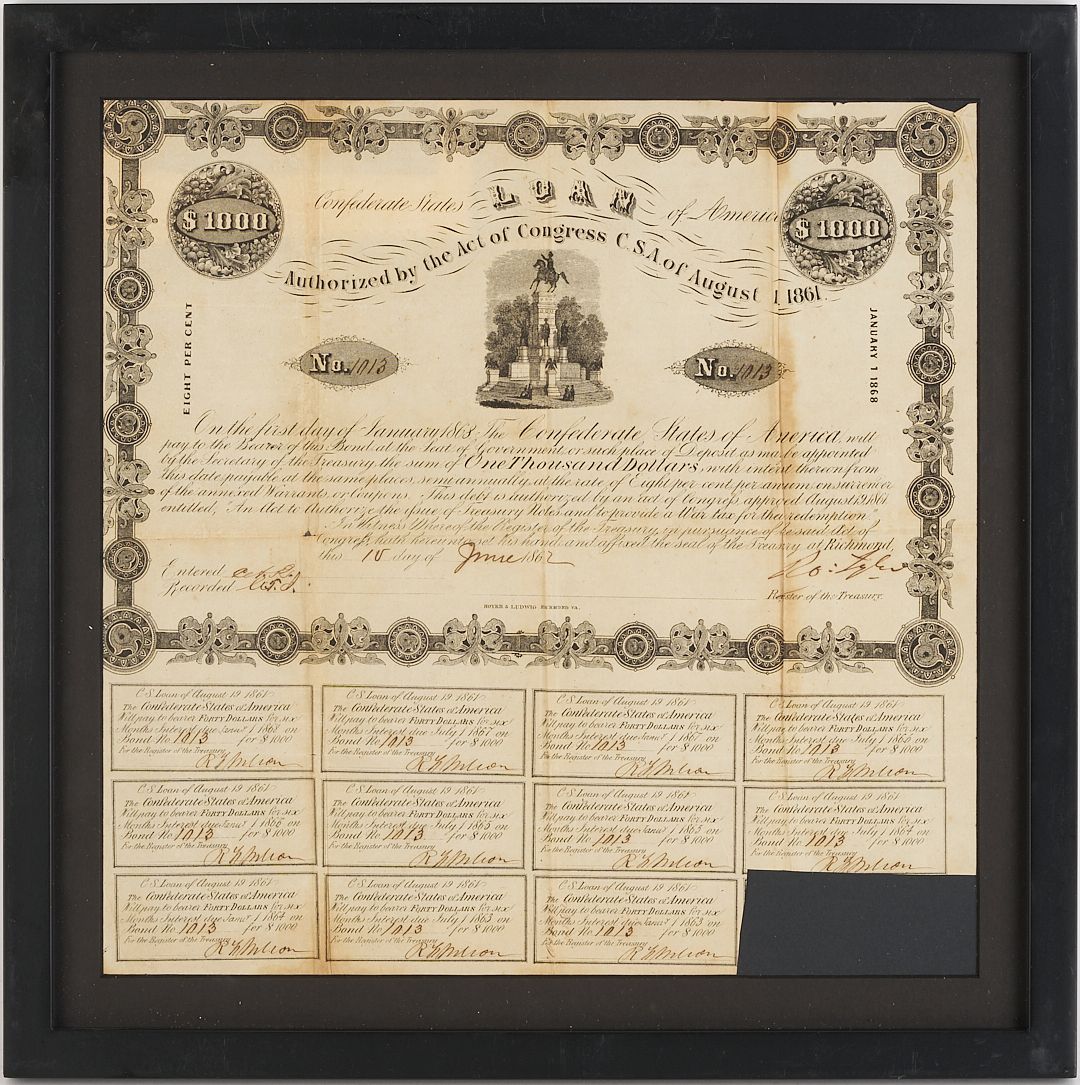 Confederate States LOAN of America
$ 1000
$ 1000
Authorized by the Act of Congress C.S.A. of August 1, 1861.
EIGHT PER CENT
JANUARY 1 1868
No. 1013
No. 1013
On the first day of January 1868, The Confederate States of America, will
pay to the Bearer of this Bond at the Seat of Government, or such place of Deposit as may be appointed
by the Secretary of the Treasury the sum of One Thousand Dollars, with interest thereon from
this date payable at the same places, semi annually, at the rate of Eight per cent. per annum on surrender
of the annexed Warrants, or Coupons. This debt is authorized by an act of Congress approved August 19, 1861
entitled, "An Act to Authorize the issue of Treasury Notes and to provide a War tax for their redemption"
In Witness Whereof the Register of the Treasury, in pursuance of the said Act of
Congress hath hereunto set his hand and affixed the seal of the Treasury at Richmond,
this 10 day of June 1862
Entered
Recorded
Ro. Tyler
Register of the Treasury.
HOYER & LUDWIG RICHMOND VA.
C.S. Loan of August 19 1861
The Confederate States of America
Will pay to bearer FORTY DOLLARS for six
Months Interest due Jany 1 1868 on
Bond No. 1013 for $ 1000
For the Register of the Treasury
C.S. Loan of August 19 1861
The Confederate States of America
Will pay to bearer FORTY DOLLARS for six
Months Interest due July 1 1867 on
Bond No. 1013 for $ 1000
For the Register of the Treasury
C.S. Loan of August 19 1861
The Confederate States of America
Will pay to bearer FORTY DOLLARS for six
Months Interest due Jany 1 1867 on
Bond No. 1013 for $ 1000
For the Register of the Treasury
C.S. Loan of August 19 1861
The Confederate States of America
Will pay to bearer FORTY DOLLARS for six
Months Interest due July 1 1866 on
Bond No. 1013 for $ 1000
For the Register of the Treasury
C.S. Loan of August 19 1861
The Confederate States of America
Will pay to bearer FORTY DOLLARS for six
Months Interest due Jany 1 1866 on
Bond No. 1013 for $ 1000
For the Register of the Treasury
C.S. Loan of August 19 1861
The Confederate States of America
Will pay to bearer FORTY DOLLARS for six
Months Interest due July 1 1865 on
Bond No. 1013 for $ 1000
For the Register of the Treasury
C.S. Loan of August 19 1861
The Confederate States of America
Will pay to bearer FORTY DOLLARS for six
Months Interest due Jany 1 1865 on
Bond No. 1013 for $ 1000
For the Register of the Treasury
C.S. Loan of August 19 1861
The Confederate States of America
Will pay to bearer FORTY DOLLARS for six
Months Interest due July 1 1864 on
Bond No. 1013 for $ 1000
For the Register of the Treasury
C.S. Loan of August 19 1861
The Confederate States of America
Will pay to bearer FORTY DOLLARS for six
Months Interest due Jany 1 1864 on
Bond No. 1013 for $ 1000
For the Register of the Treasury
C.S. Loan of August 19 1861
The Confederate States of America
Will pay to bearer FORTY DOLLARS for six
Months Interest due July 1 1863 on
Bond No. 1013 for $ 1000
For the Register of the Treasury
C.S. Loan of August 19 1861
The Confederate States of America
Will pay to bearer FORTY DOLLARS for six
Months Interest due Jany 1 1863 on
Bond No. 1013 for $ 1000
For the Register of the Treasury